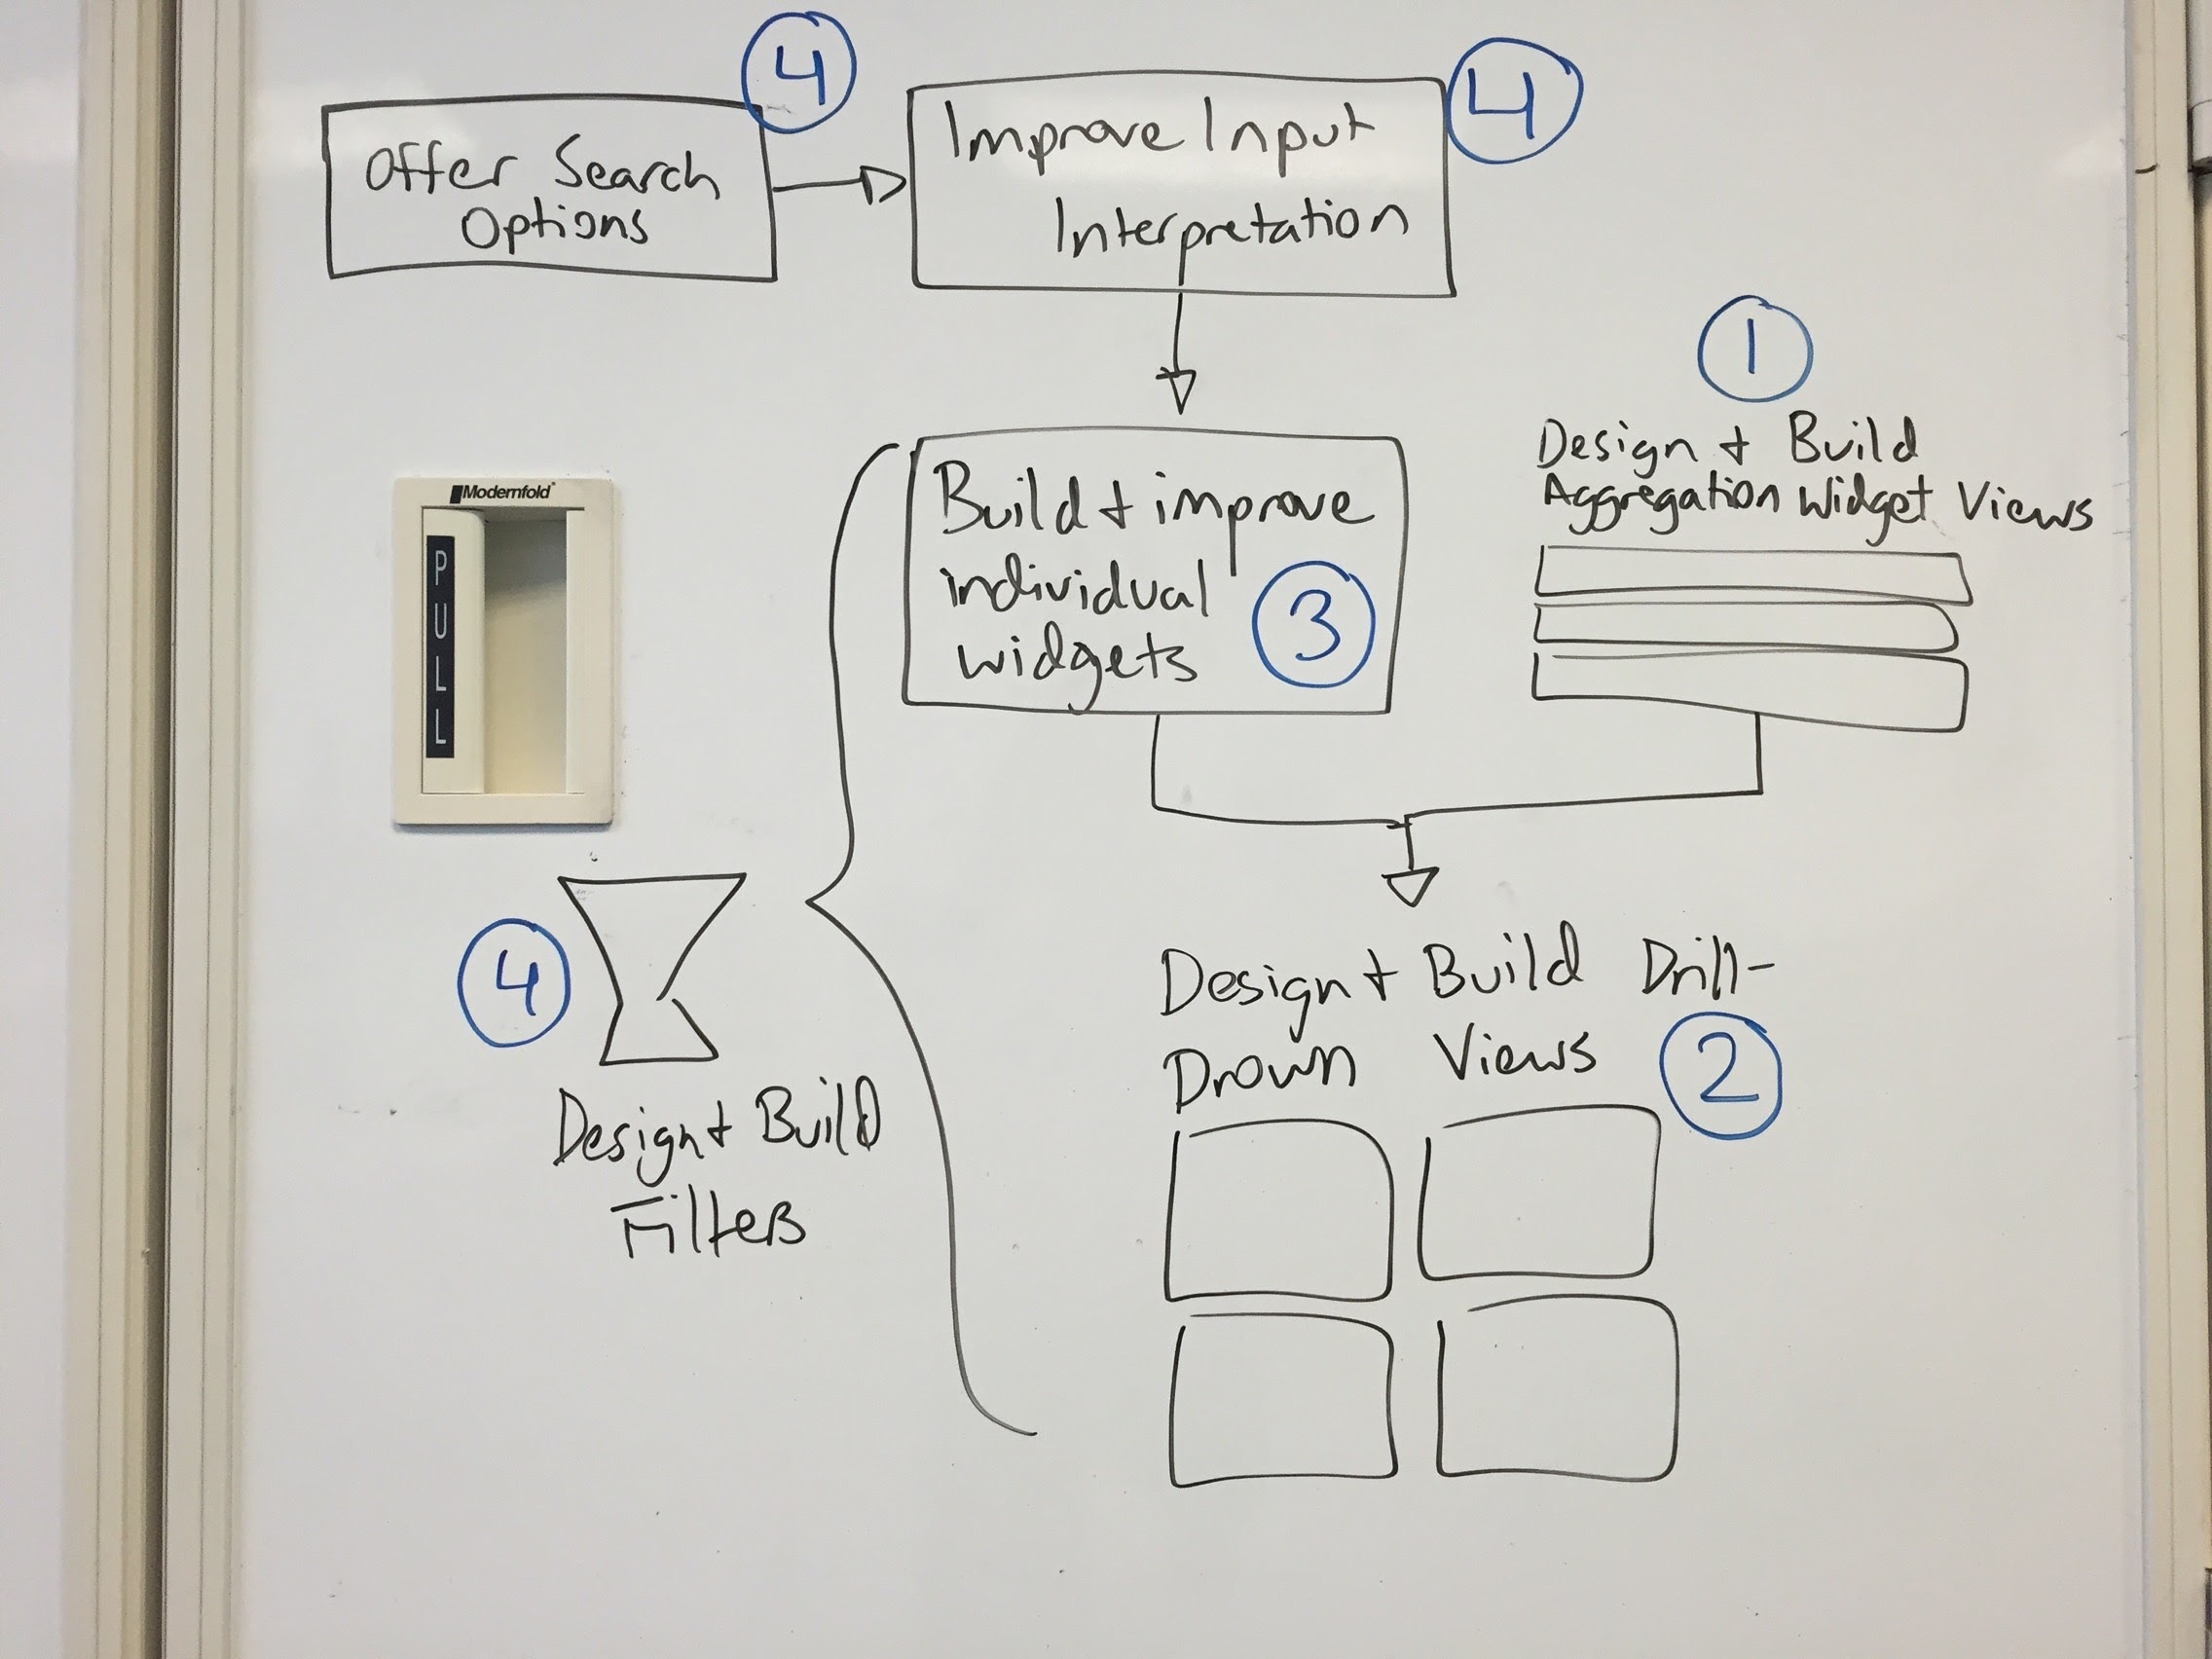 4
Offer Search
Options
4
Improve Input
Interpretation
1
Design + Build
Aggregation Widget Views
Build + improve
individual
widgets
3
Modernfold
PULL
4
Design + Build
Filters
Design + Build Drill-
Drown Views
2